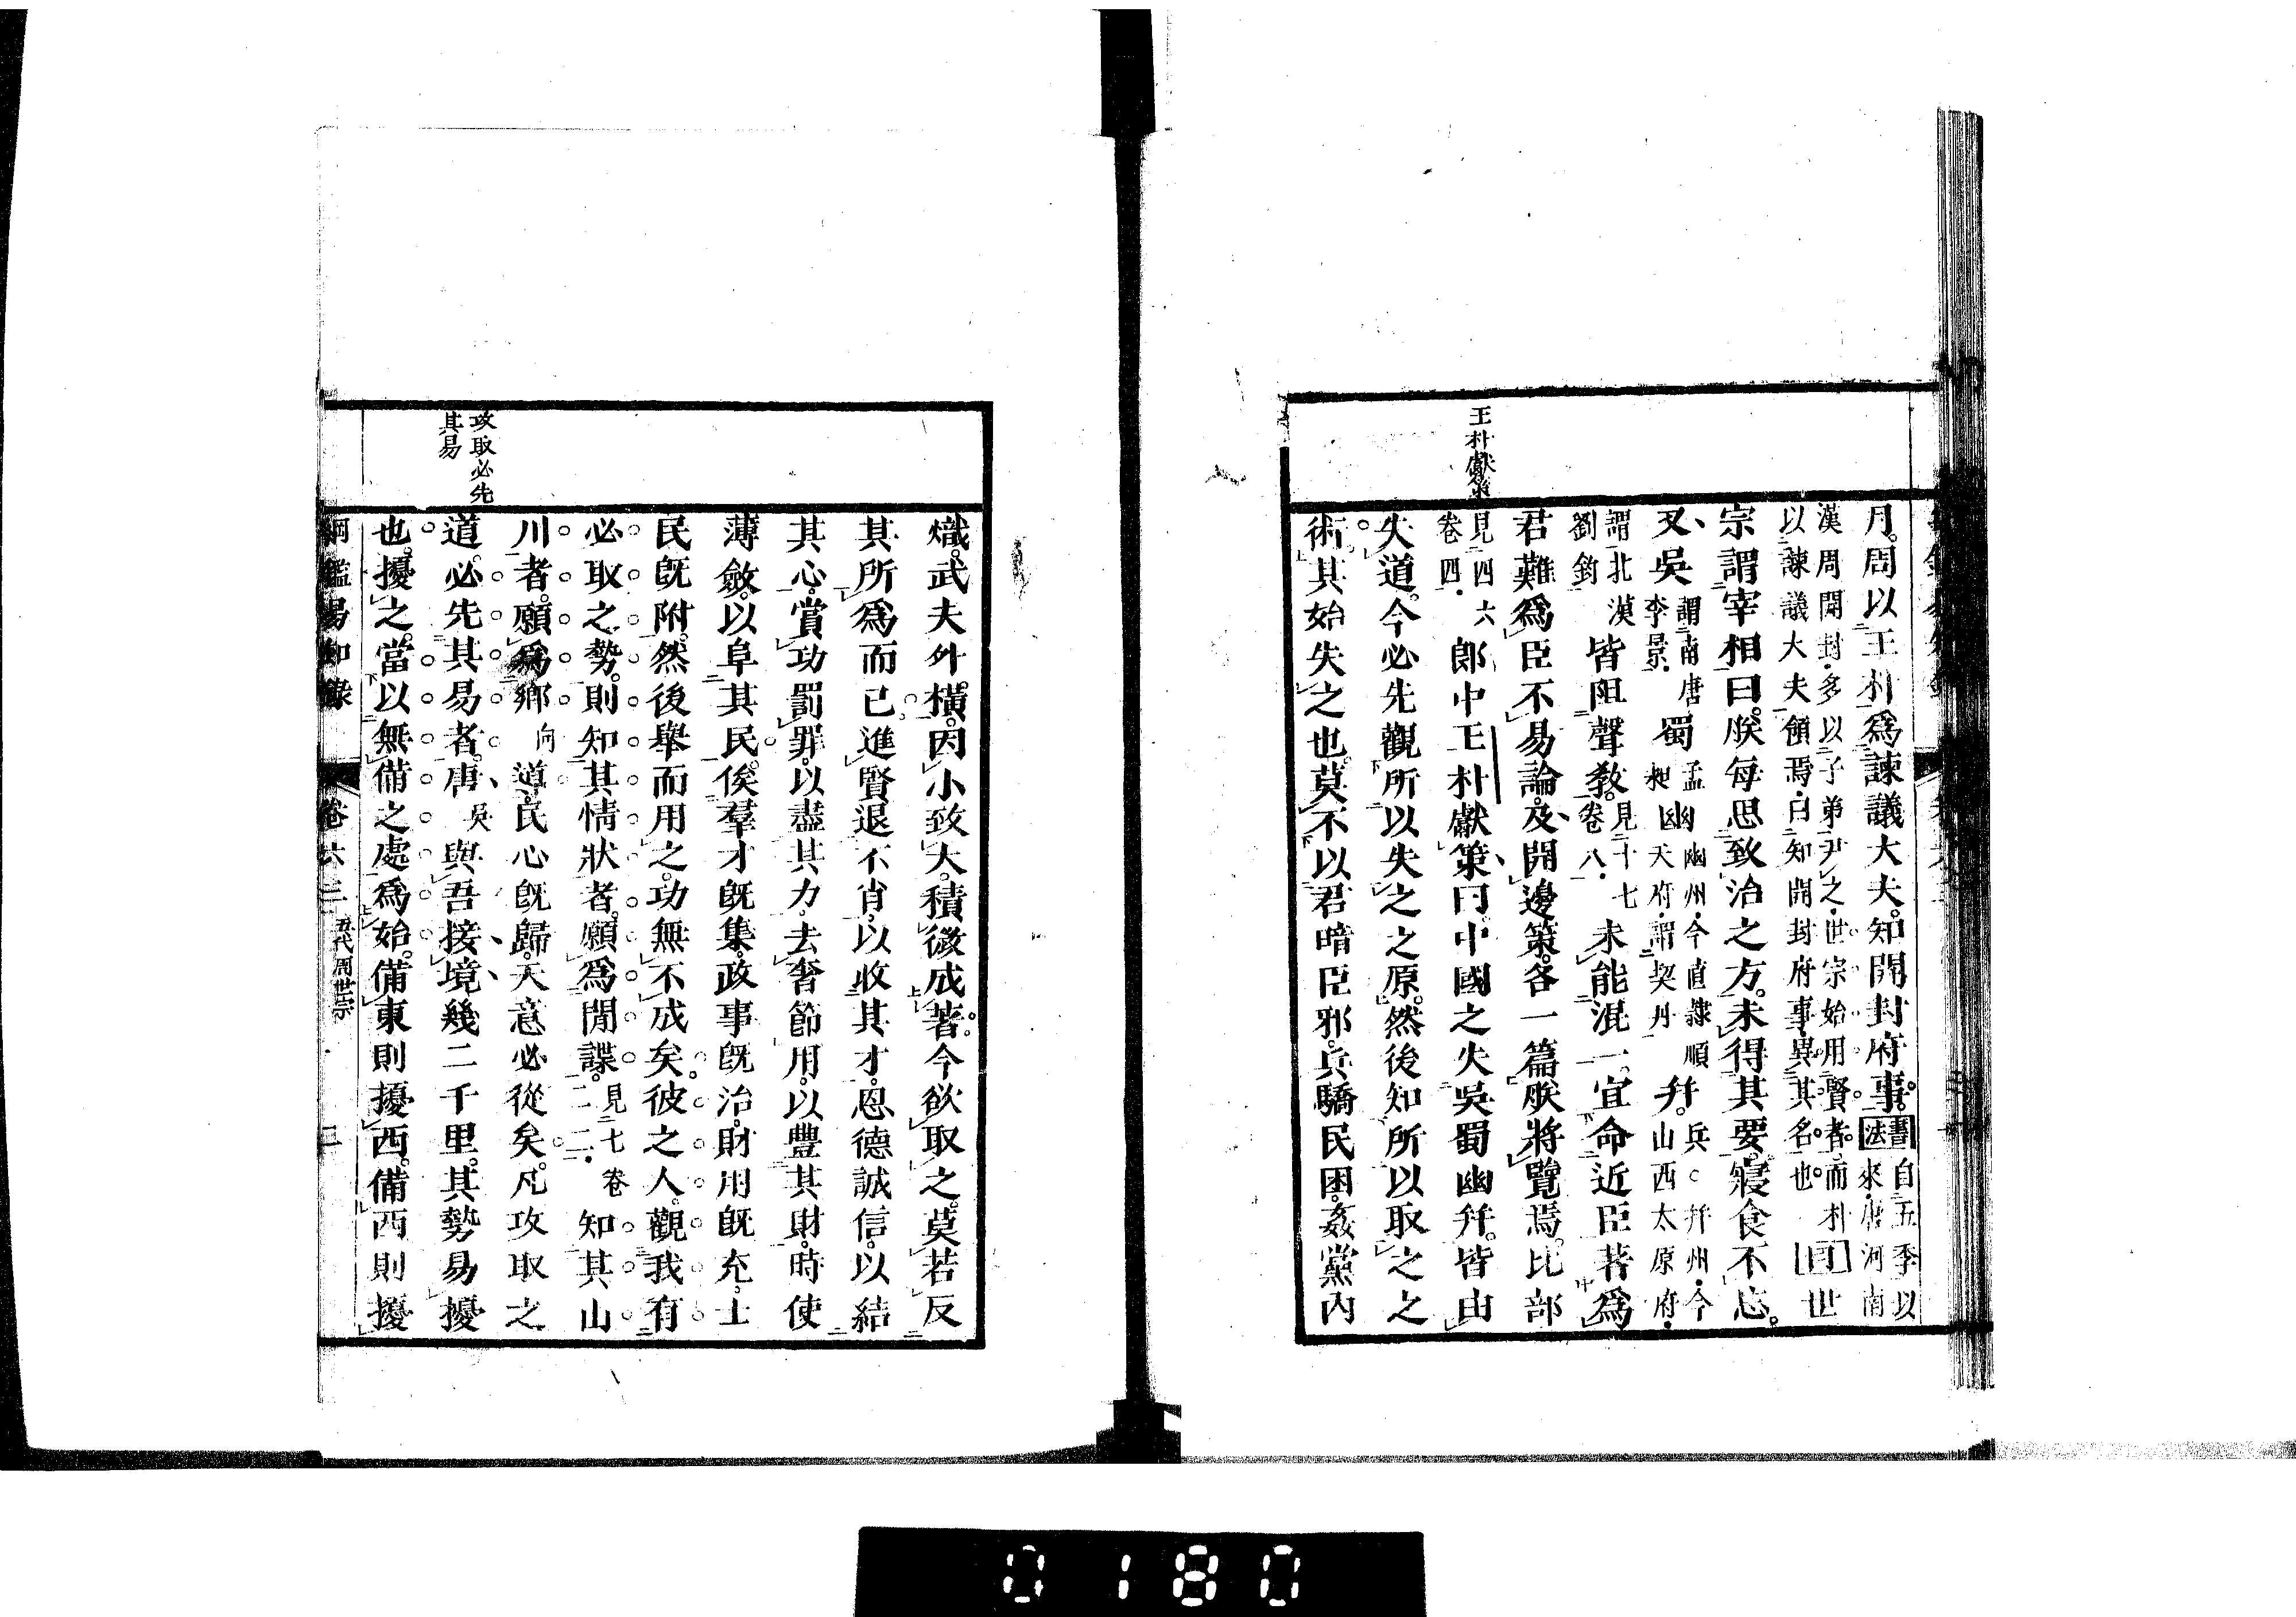 王朴獻策
月。周以王朴爲諫議大夫。知開封府事。書法自五季以來。唐河南
漢周開封。多以子弟尹之。世宗始用賢者。而朴
以諫議大夫領焉。曰知開封府事。異其名也。目世
宗謂宰相曰。朕每思致治之方。未得其要。寢食不忘。
又吳謂南唐李景。蜀孟昶幽幽州。今直隸順天府。謂契丹幷。兵。幷州。今山西太原府。
謂北漢劉鈞皆阻聲敎。見十七卷八。未能混一。宜命近臣著爲
君難爲臣不易論。及開邊策。各一篇朕將覽焉。比部
見四六卷四。郎中王朴獻策曰。中國之失吳蜀幽幷。皆由
失道。今必先觀所以失之之原。然後知所以取之之
術。其始失之也。莫不以君暗臣邪。兵驕民困。姦黨內
攻取必先
其易
熾。武夫外橫。因小致大。積微成著。今欲取之。莫若反
其所爲而已進賢退不肖。以收其才。恩德誠信。以結
其心。賞功罰罪。以盡其力。去奢節用。以豐其財。時使
薄斂。以阜其民。俟羣才旣集。政事旣治。財用旣充。士
民旣附。然後舉而用之。功無不成矣。彼之人。觀我有
必取之勢。則知其情狀者。願爲間諜。見七卷二二。知其山
川者。願爲鄉向道。民心旣歸。天意必從矣。凡攻取之
道。必先其易者。唐吳與吾接境幾二千里。其勢易擾
也。擾之。當以無備之處爲始。備東則擾西。備西則擾
綱鑑易知錄 卷六三 五代周世宗 二
0180